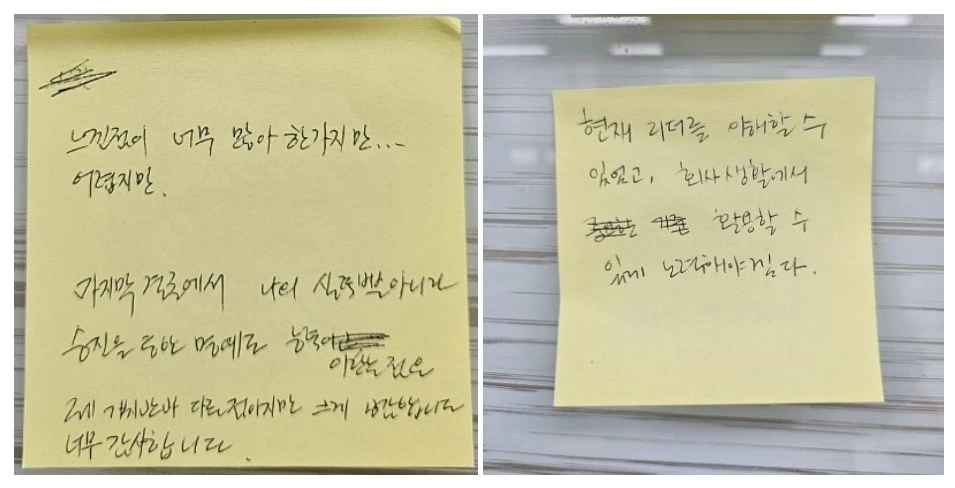 느낀점이 너무 많아 한가지만...
어렵지만.
마지막 결론에서 나의 실력뿐 아니라
승진을 통한 명예도 능력이
이라는 점은
크게 생각합니다
너무 감사합니다.
현재 리더를 이해할 수
있었고, 회사생활에서
활용할 수
있게 노력해야겠다.